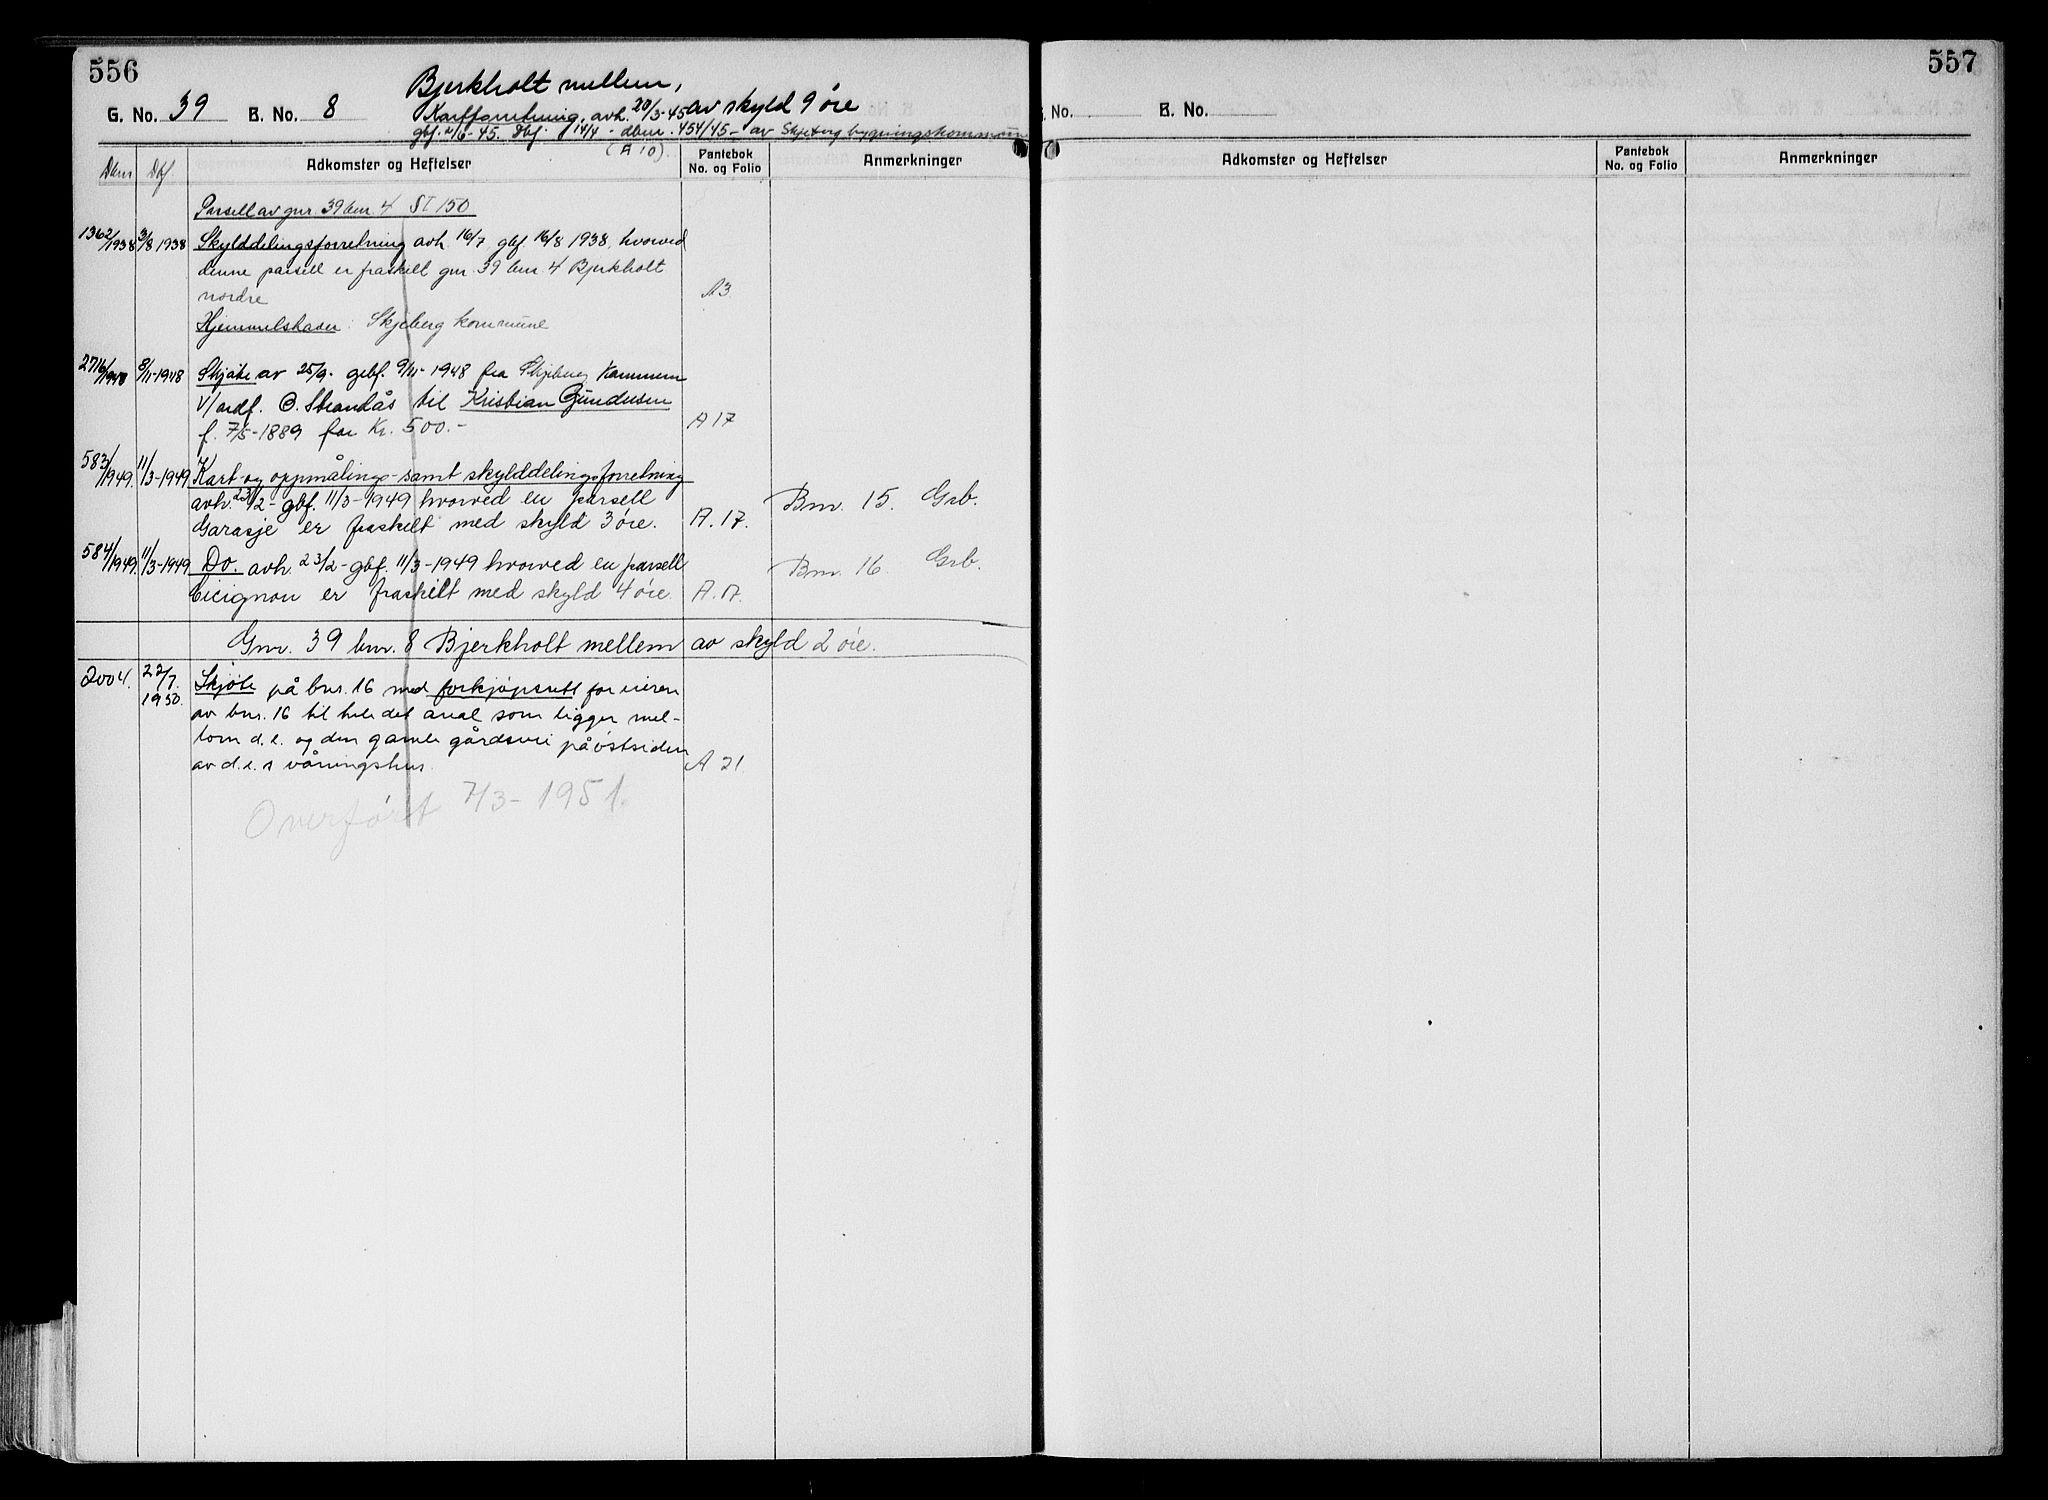 556
G. No. 39 B. No. 8 Bjerkholt mellem, av skyld 9 øre
Kartforretning, avh. 20/3-45
gbf. 2/6-45. Dbf. 14/4 - dbnr. 454/45 - av Skjeberg bygningskommune
(A 10).
Dbnr Dbf. Adkomster og Heftelser Pantebok No. og Folio Anmerkninger
Parsell av gnr. 39 bnr. 4 ST 150
1362/1938 3/8 1938 Skylddelingsforretning avh. 16/7 gbf. 16/8 1938, hvorved
denne parsell er fraskilt gnr. 39 bnr. 4 Bjerkholt
nordre A3
Hjemmelshaver: Skjeberg kommune
2716/1948 8/11-1948 Skjøte av 25/9- gebf. 9/11-1948 fra Skjeberg Kommune
v/ordf. O. Strandås til Kristian Gundersen
f. 7/5-1889 for Kr. 500.- A 17
583/1949. 11/3-1949 Kart- og oppmålings- samt skylddelingsforretning
avh. 23/2- gbf. 11/3-1949 hvorved en parsell
Garasje er fraskilt med skyld 3 øre. A. 17. Bnr. 15. Grb.
584/1949. 11/3-1949 Do. avh. 23/2- gbf. 11/3-1949 hvorved en parsell
Cicignon er fraskilt med skyld 4 øre. A. 17. Bnr. 16 Grb.
Gnr. 39 bnr. 8 Bjerkholt mellem av skyld 2 øre.
2004. 22/7. 1950. Skjøte på bnr. 16 med forkjøpsrett for eieren
av bnr. 16 til hele det areal som ligger mel-
lom d.e. og den gamle gårdsvei på østsiden
av d.e.s våningshus. A 21.
Overført 7/3-1951.
557
G. No. B. No.
Adkomster og Heftelser Pantebok No. og Folio Anmerkninger